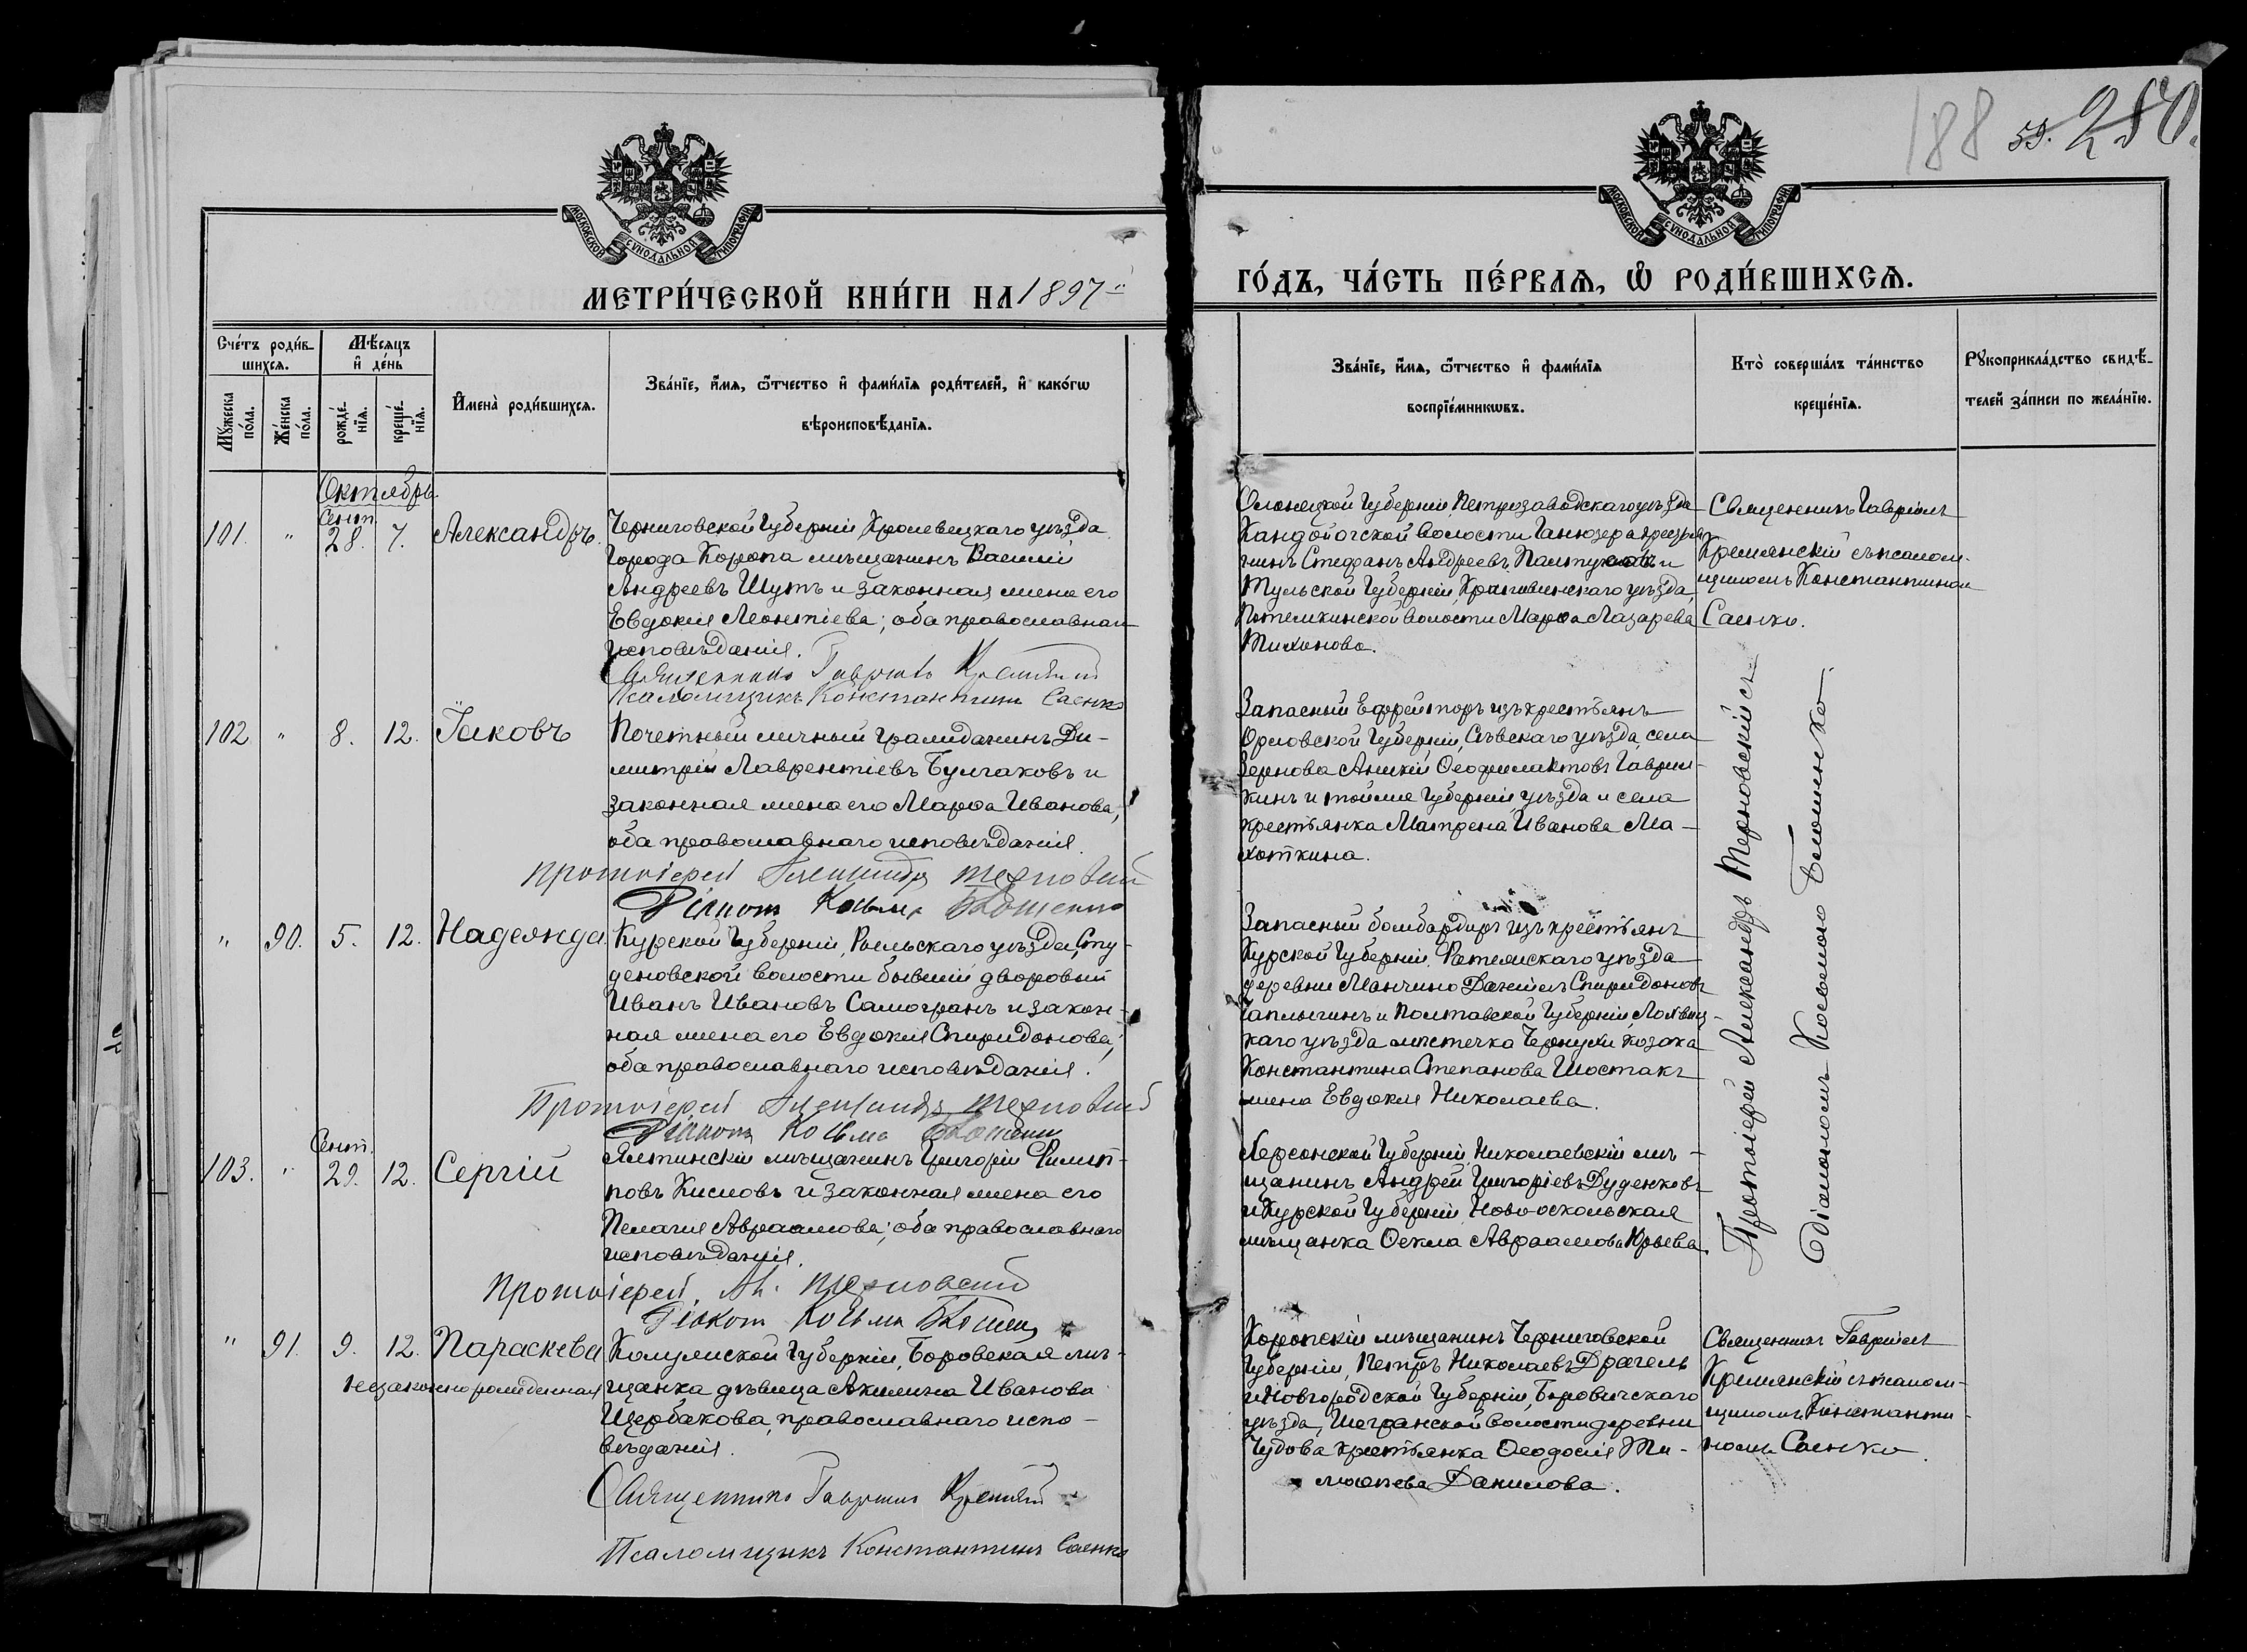 188 59. 280.
МОСКОВСКОЙ СѴНОДАЛЬНОЙ ТИПОГРАФІИ
МОСКОВСКОЙ СѴНОДАЛЬНОЙ ТИПОГРАФІИ
МЕТРИ́ЧЕСКОЙ КНИ́ГИ НА 1897й
ГО́ДЪ, ЧА́СТЬ ПЕ́РВАѦ, Ѽ РОДИ́ВШИХСѦ.
Счéтъ роди́в-
шихся.
Мꙋжеска
по́ла.
Же́нска
по́ла.
Мѣ́сяцъ
и де́нь
рожде́-
нїя.
креще́-
нїя.
И҆мена̀ роди́вшихся.
Зва́нїе, и҆́мя, ѻ҆́тчество и҆ фами́лїя роди́телей, и҆ како́гѡ
вѣроисповѣ́данїя.
Зва́нїе, и҆́мя, ѻ҆́тчество и҆ фами́лїя
воспрїе́мникѡвъ.
Кто̀ соверша́лъ та́инство
креще́нїя.
Рꙋкоприкла́дство свидѣ́-
телей за́писи по жела́нїю.
Октябрь.
Сент.
101. " 28. 7. Александръ.
Черниговской Губерніи, Кролевецкаго уѣзда
города Коропа мѣщанинъ Василій
Андреевъ Шутъ и законная жена его
Евдокія Леонтіева; оба православнаго
исповѣданія.
Священникъ Гавріилъ Кремянскій
Псаломщикъ Константинъ Саенко
Олонецкой Губерніи, Петрозаводскаго уѣзда
Кандопогской волости Ганюзера крестья-
нинъ Стефанъ Андреевъ и
Тульской Губерніи, Крапивинскаго уѣзда,
Потемкинской волости Марѳа Лазарева
Тихонова.
Священникъ Гавріилъ
Кремянскій съ псалом-
щикомъ Константиномъ
Саенко.
102. " 8. 12. Іаковъ
Почетный личный гражданинъ Ди-
митрій Лаврентіевъ Булгаковъ и
законная жена его Марѳа Иванова,
оба православнаго исповѣданія.
Протоіерей Александръ Терновскій
Діаконъ Косьма Блошенко
Запасный Ефрейторъ изъ крестьянъ
Орловской Губерніи, Сѣвскаго уѣзда, села
Зернова Аникій Ѳеофилактовъ Гаврил-
кинъ и той же Губерніи, уѣзда и села
крестьянка Матрена Иванова Ма-
хоткина.
" 90. 5. 12. Надежда.
Курской Губерніи, Рыльскаго уѣзда, Сту-
деновской волости бывшій дворовый
Иванъ Ивановъ Самогранъ и закон-
ная жена его Евдокія Спиридонова,
оба православнаго исповѣданія.
Протоіерей Александръ Терновскій
Діаконъ Косьма Блошенко
Запасный бомбардиръ изъ крестьянъ
Курской Губерніи, уѣзда
деревни Манчино Даніилъ Спиридоновъ
Чаплыгинъ и Полтавской Губерніи, Лохвиц-
каго уѣзда мѣстечка Чернухи козака
Константина Степанова Шостакъ
жена Евдокія Николаева.
Протоіерей Александръ Терновскій съ
діакономъ Косьмою Блошенко
Сент.
103. " 29. 12. Сергій
Ялтинскій мѣщанинъ Григорій Филип-
повъ Кисловъ и законная жена его
Пелагія Авраамова; оба православнаго
исповѣданія.
Протоіерей Ал. Терновскій
Діаконъ Косьма Блошенко
Херсонской Губерніи, Николаевскій мѣ-
щанинъ Андрей Григоріевъ Дуденковъ
и Курской Губерніи, Новооскольская
мѣщанка Ѳекла Авраамова Юрьева.
" 91. 9. 12. Параскева
незаконнорожденная
Калужской Губерніи, Боровская мѣ-
щанка дѣвица Акилина Иванова
Щербакова, православнаго испо-
вѣданія.
Священникъ Гавріилъ Кремянскій
Псаломщикъ Константинъ Саенко
Коропскій мѣщанинъ Черниговской
Губерніи, Петръ Николаевъ Драгель
и Новгородской Губерніи, Боровичскаго
уѣзда, Шегринской волости деревни
Чудова крестьянка Ѳеодосія Ти-
моѳеева Данилова.
Священникъ Гавріилъ
Кремянскій съ псалом-
щикомъ Константи-
номъ Саенко.